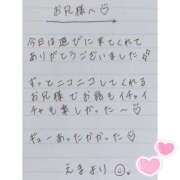 お兄様へ♡
今日は遊びに来てくれて
ありがとうございました
ずってニコニコしてくれる
お兄様でお話もイチャイ
チャも楽しかったー♡
ギューあったかかった♡
えまより☺